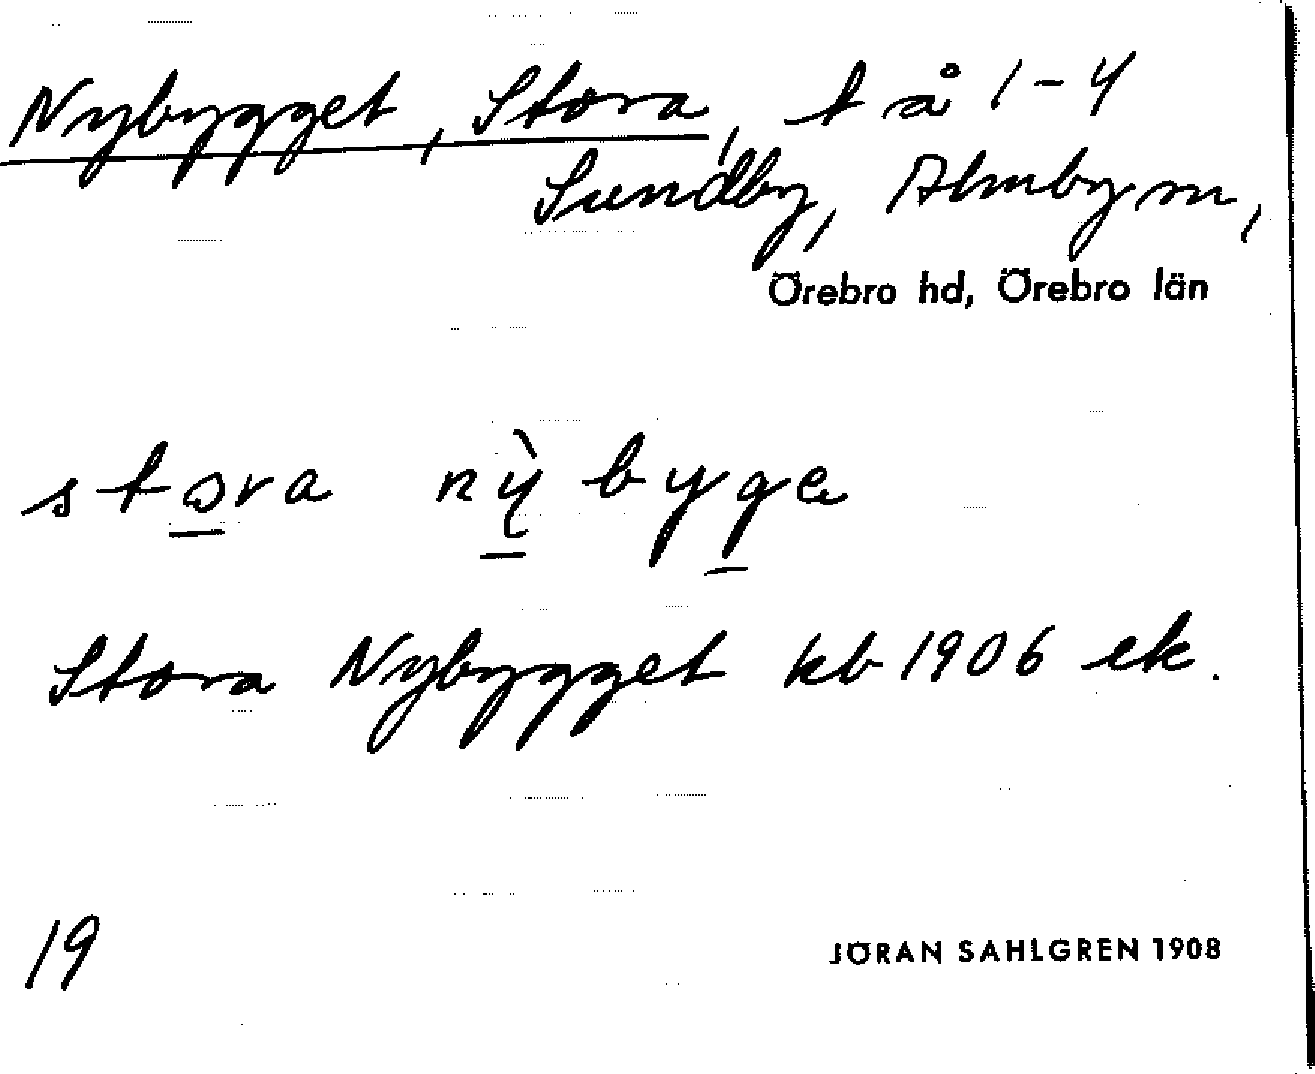 Nybygget, Stora, t å 1-4
Sundby, Almby sn,
Örebro hd, Örebro län
stɷra nỳbyge
Stora Nybygget kb 1906 ek.
19
JÖRAN SAHLGREN 1908